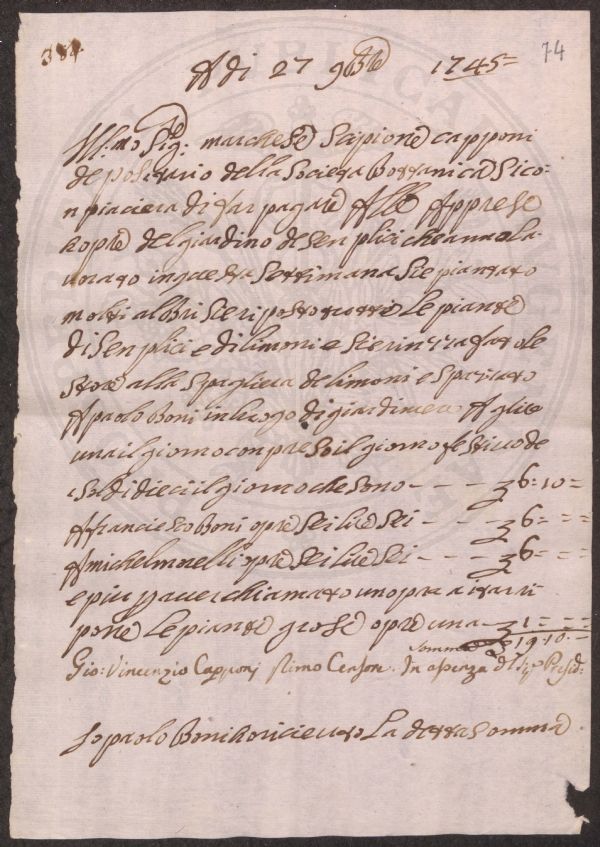 384
74
A di 27 9bre 1745=
Ill:mo Sig: marchese Scipione capponi
depositario della Societa Bottanica Si co:
npiaciera di far pagare Alle Apprese
hopre del giardino de Senplici che anno la
uorato in questa Settimana Si e piantato
molti albbri Si e riposto tutte le piante
di Senplici e di limoni e Si e rin tatavole
stoie alla Spagliera de limoni e Spazzato
A paolo Boni in luogo di giardiniere A lire
una il giorno conpreso il giorno festiuo de
soldi dieci il giorno che sono - - - £ 6=10=
A francieco Boni opre Sei lire Sei - - - £ 6= = =
A michel morelli opre Sei lire Sei - - - £ 6= = =
e piu p auer chiamato uno p aiutarri
porre le piante grose opre una - £ 1= = =
Somma £ 19.10.-
Gio: Vincenzio Capponj Primo Censore In assenza del Sig.e Presid:
Io paolo Boni ho riceuuto La detta Somma